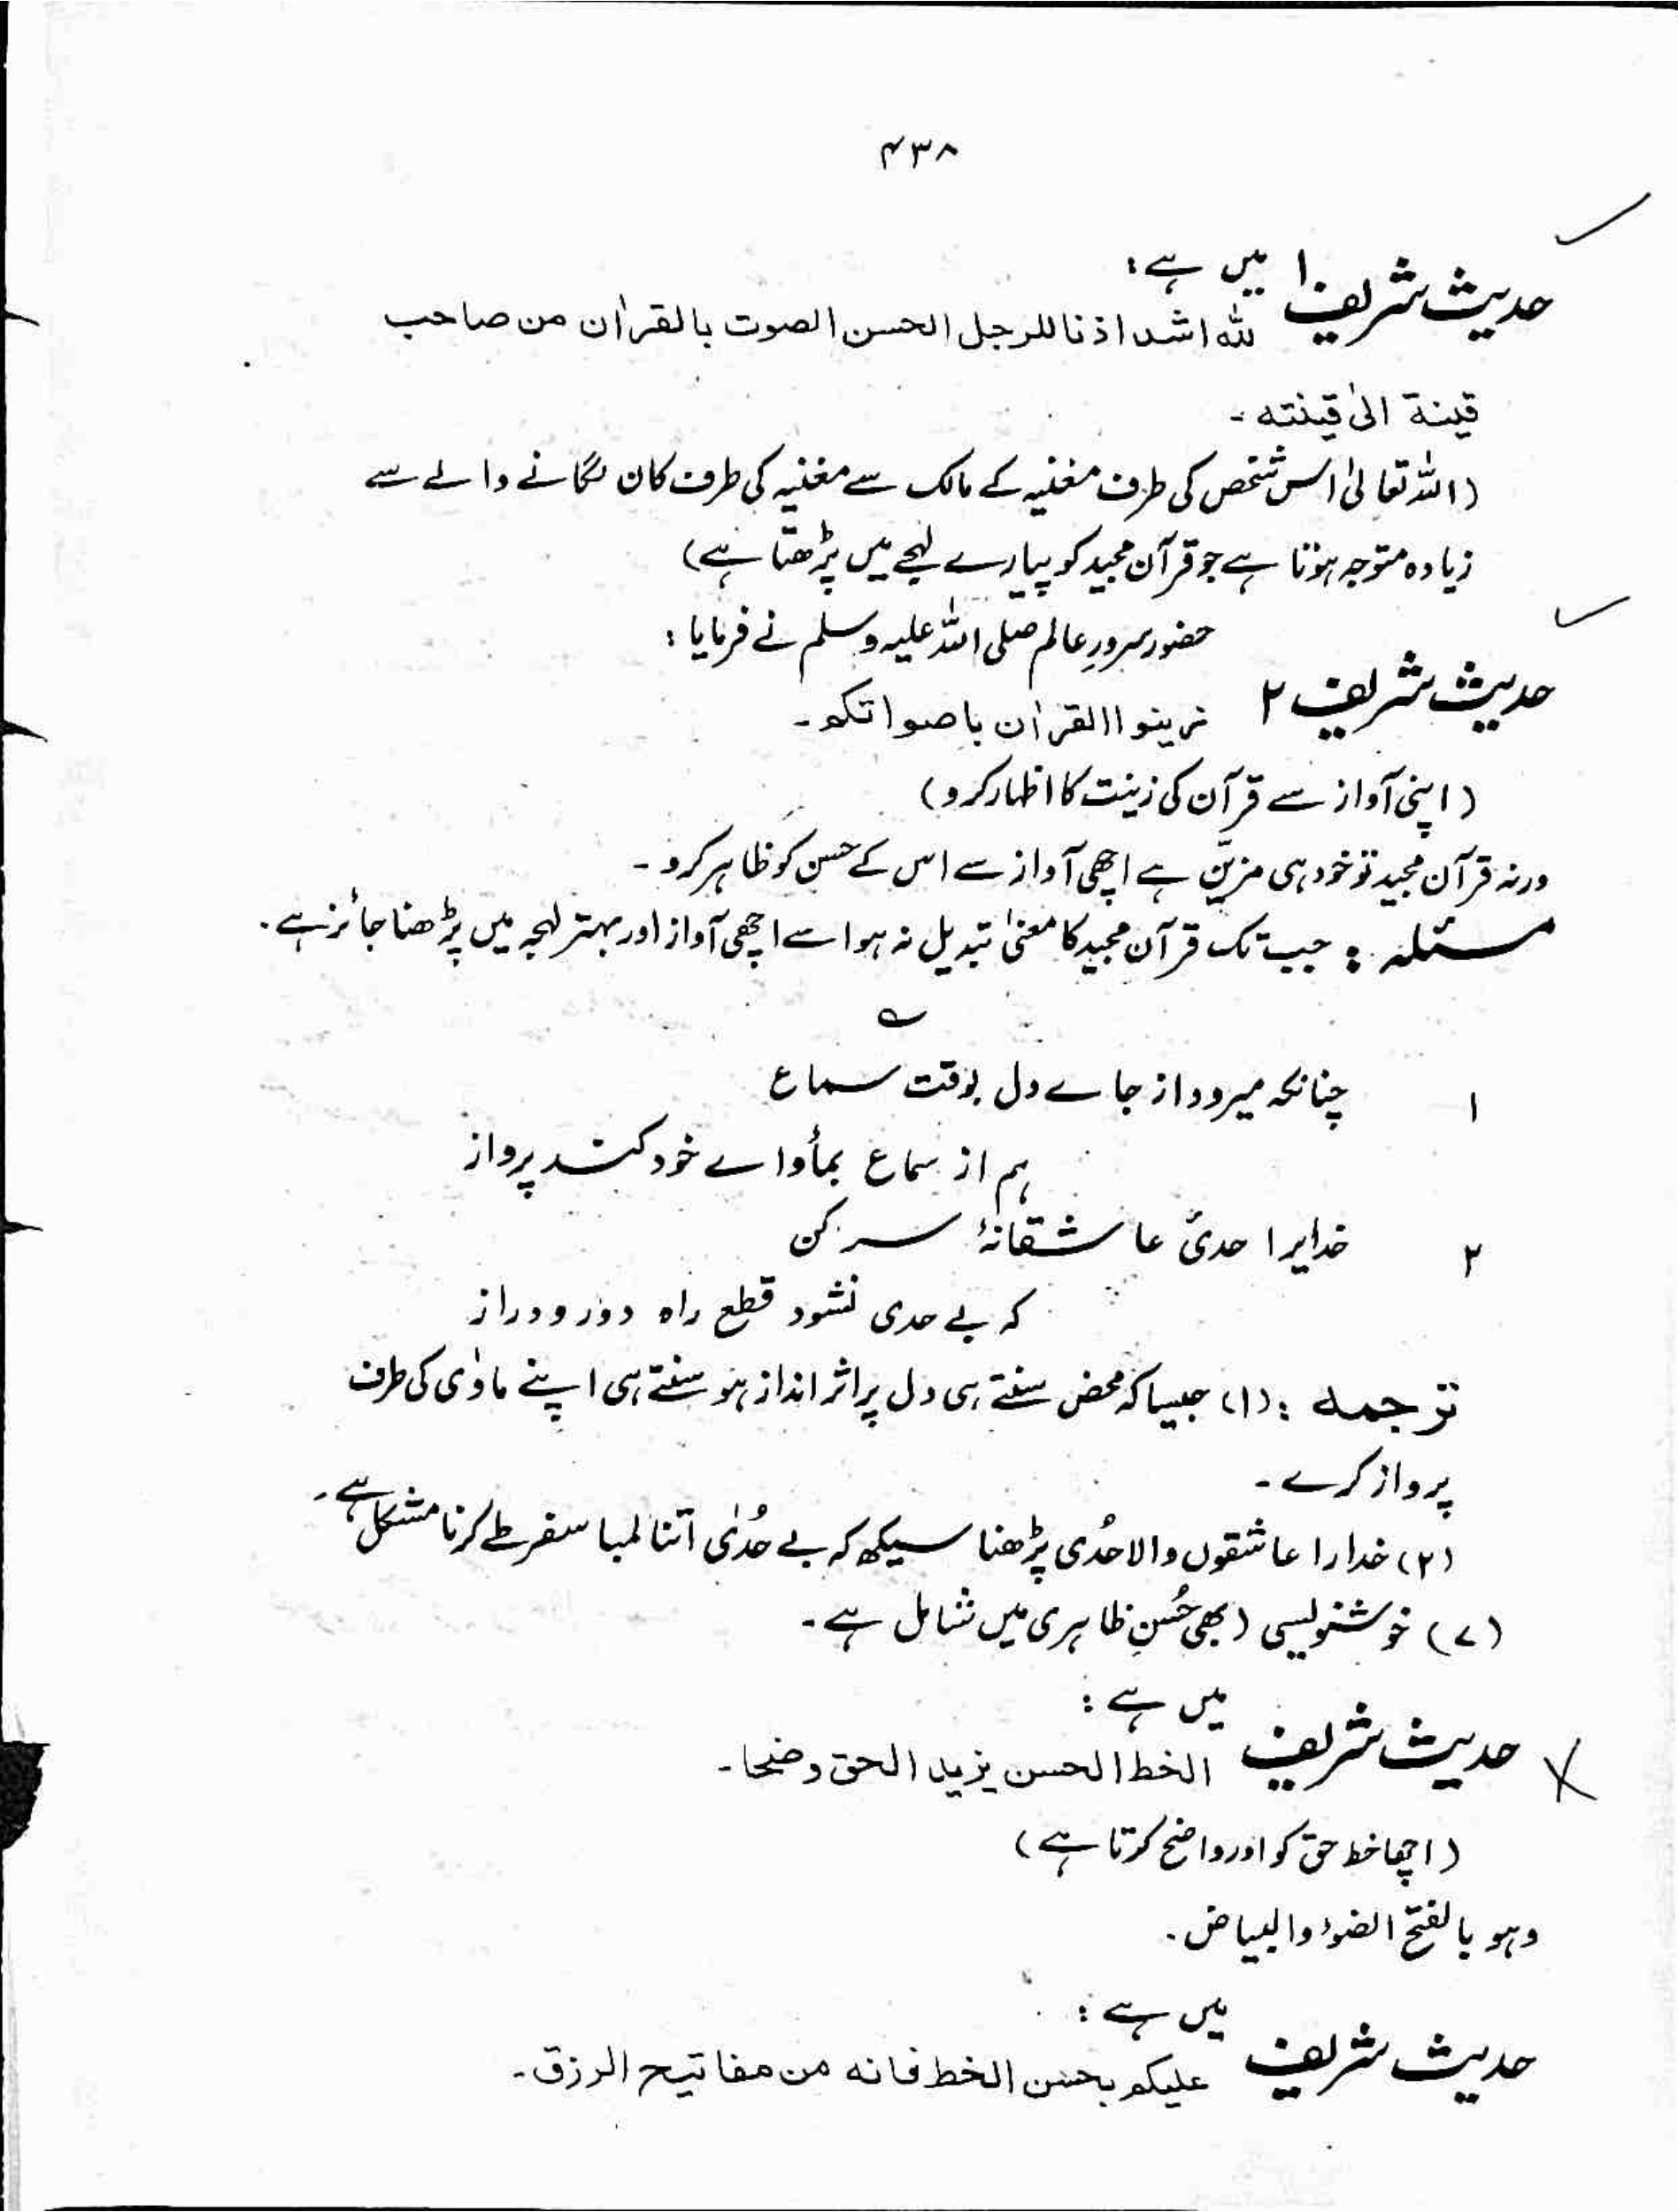 ۴۳۸
حدیث شریف ۱ میں ہے :
للہ اشد اذنا للرجل الحسن الصوت بالقراٰن من صاحب
قینۃ الیٰ قینتہ ۔
(اللہ تعالیٰ اس شخص کی طرف مغنیہ کے مالک سے مغنیہ کی طرف کان لگانے والے سے
زیادہ متوجہ ہوتا ہے جو قرآن مجید کو پیارے لہجے میں پڑھتا ہے)
حضور سرورِ عالم صلی اللہ علیہ وسلم نے فرمایا :
حدیث شریف ۲ زینوا القراٰن باصواتکم ۔
(اپنی آواز سے قرآن کی زینت کا اظہار کرو)
ورنہ قرآن مجید تو خود ہی مزیّن ہے اچھی آواز سے اس کے حسن کو ظاہر کرو ۔
مسئلہ : جب تک قرآن مجید کا معنیٰ تبدیل نہ ہو اسے اچھی آواز اور بہتر لہجہ میں پڑھنا جائز ہے ۔
؎
۱ چنانکہ میرود از جاے دل بوقت سماع
ہم از سماع بمأواے خود کند پرواز
۲ خدایرا حدیٔ عاشقانۂ سر کن
کہ بے حدی نشود قطع راہ دور و دراز
ترجمہ : (۱) جیسا کہ محض سنتے ہی دل پر اثر انداز ہو سنتے ہی اپنے ماوٰی کی طرف
پرواز کرے ۔
(۲) خدارا عاشقوں والا حُدی پڑھنا سیکھ کہ بے حُدٰی اتنا لمبا سفر طے کرنا مشکل ہے ۔
(۷) خوشنویسی (بھی حُسنِ ظاہری میں شامل ہے ۔
میں ہے :
حدیث شریف الخط الحسن یزید الحق وضحا ۔
(اچھا خط حق کو اور واضح کرتا ہے)
وہو بالفتح الضوء والبیاض ۔
میں ہے :
حدیث شریف علیکم بحسن الخط فانہ من مفاتیح الرزق ۔